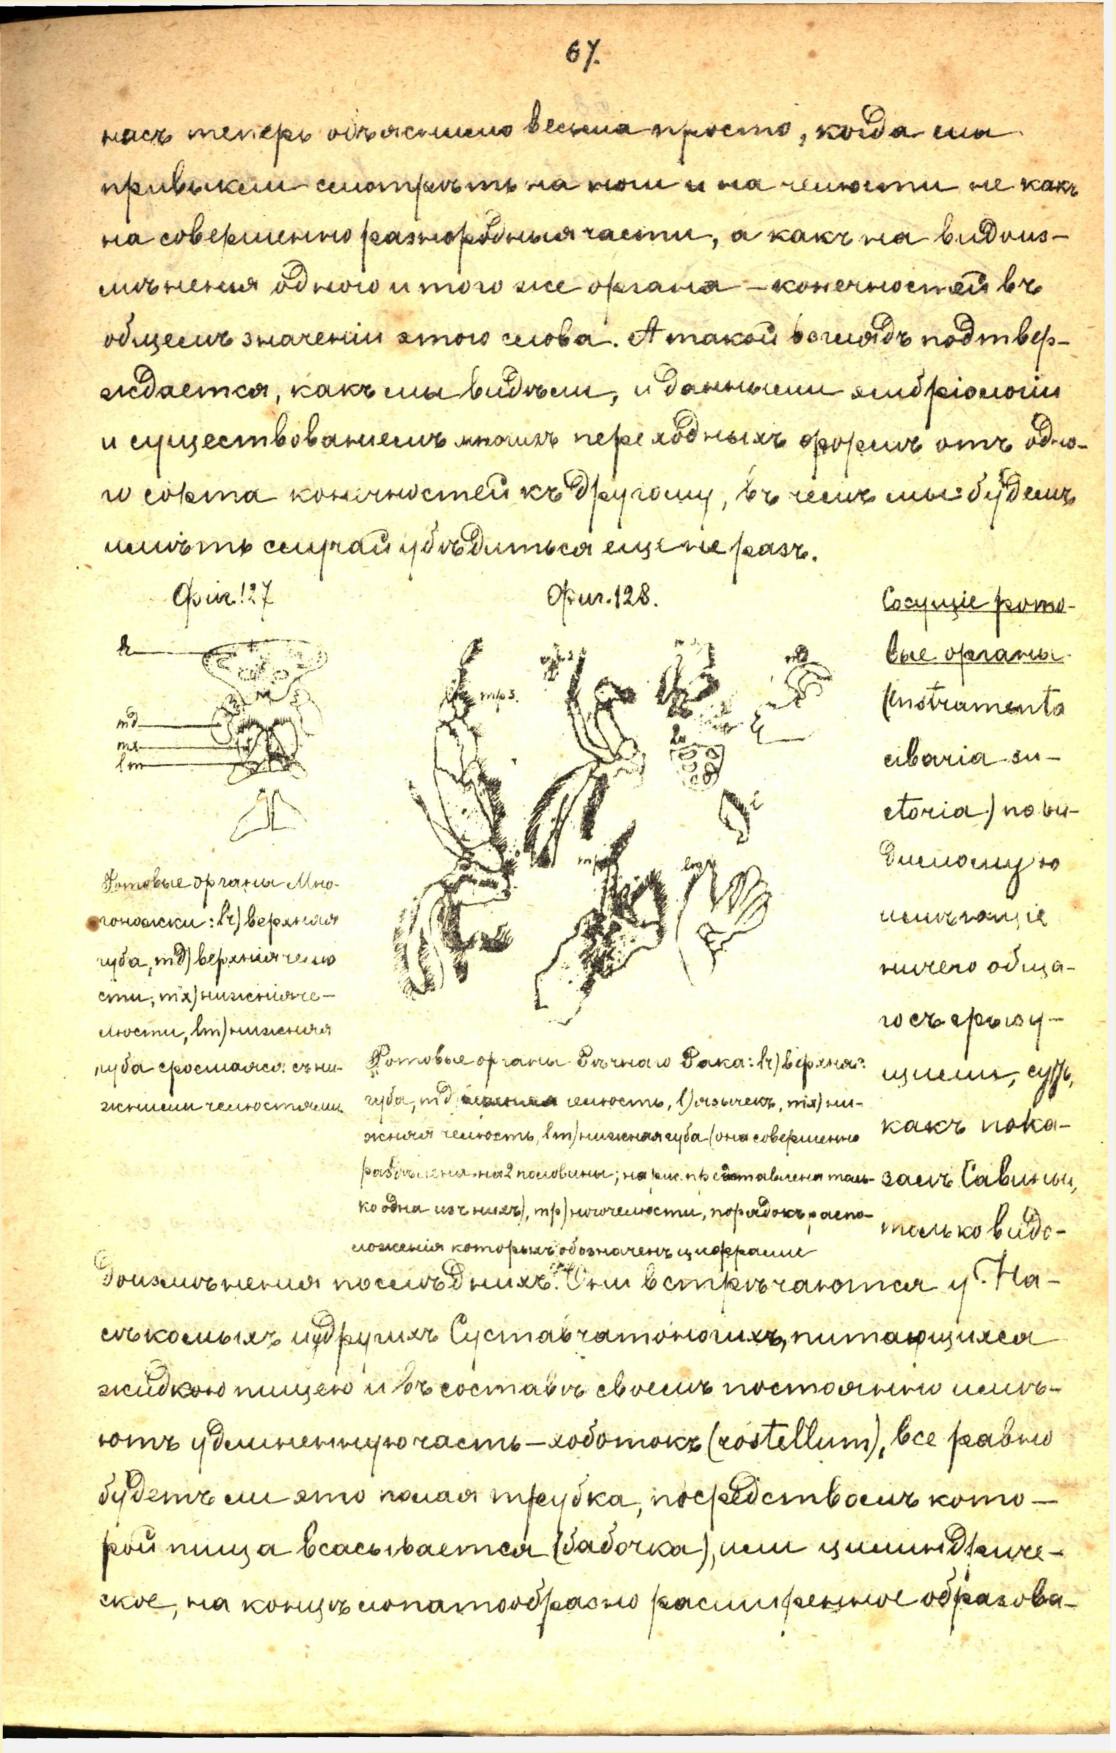 67.
насъ теперь объяснимо весьма просто, когда мы
привыкли смотрѣть на ноги и на челюсти не какъ
на совершенно разнородныя части, а какъ на видоиз-
мѣненія одного и того же органа – конечностей въ
общемъ значеніи этого слова. А такой взглядъ подтвер-
ждается, какъ мы видѣли, и данными эмбріологіи
и существованіемъ многихъ переходныхъ формъ отъ одно-
го сорта конечностей къ другому, въ чемъ мы будемъ
имѣть случай убѣдиться еще не разъ.
Фиг. 127
Фиг. 128.
lr
md
mx
lm
mp3.
Ротовые органы Мно-
гоножки: lr) верхняя
губа, md) верхнія челю
сти, mx) нижнія че-
люсти, lm) нижняя
губа сросшаяся съ ни-
жними челюстями
Ротовые органы Рѣчнаго Рака: lr) верхня:
губа, md челюсть, l) язычекъ, mx) ни-
жняя челюсть, lm) нижняя губа (она совершенно
раздѣлена на 2 половины; на рис. представлена толь-
ко одна изъ нихъ), mp) ногочелюсти, порядокъ распо-
ложенія которыхъ обозначенъ цифрами
Сосущіе рото-
вые органы
(Instramenta
cibaria su-
ctoria) по ви-
димому ю
имѣющіе
ничего обща-
го съ грызу-
щими, суть,
какъ пока-
залъ Савиньи,
только видо-
доизмѣненія послѣднихъ. Они встрѣчаются у На-
сѣкомыхъ и другихъ Суставчатоногихъ, питающихся
жидкою пищею и въ составѣ своемъ постоянно имѣ-
ютъ удлиненную часть – хоботокъ (rostellum), все равно
будетъ ли это полая трубка, посредствомъ кото-
рой пища всасывается (бабочка), или цилиндриче-
ское, на концѣ лопатообразно расширенное образова-